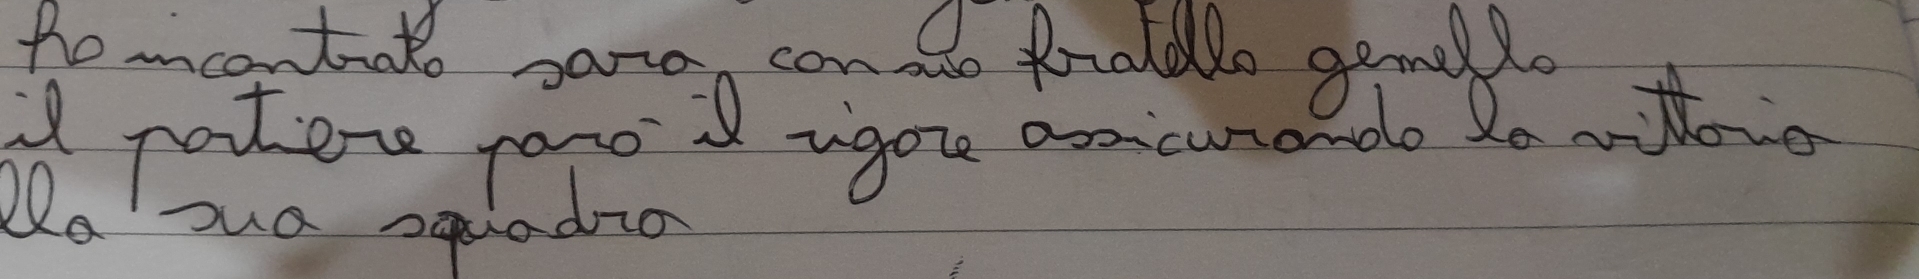 ho incontrato sara con suo fratello gemello
il portiere parò il rigore assicurando la vittoria
lla sua squadra